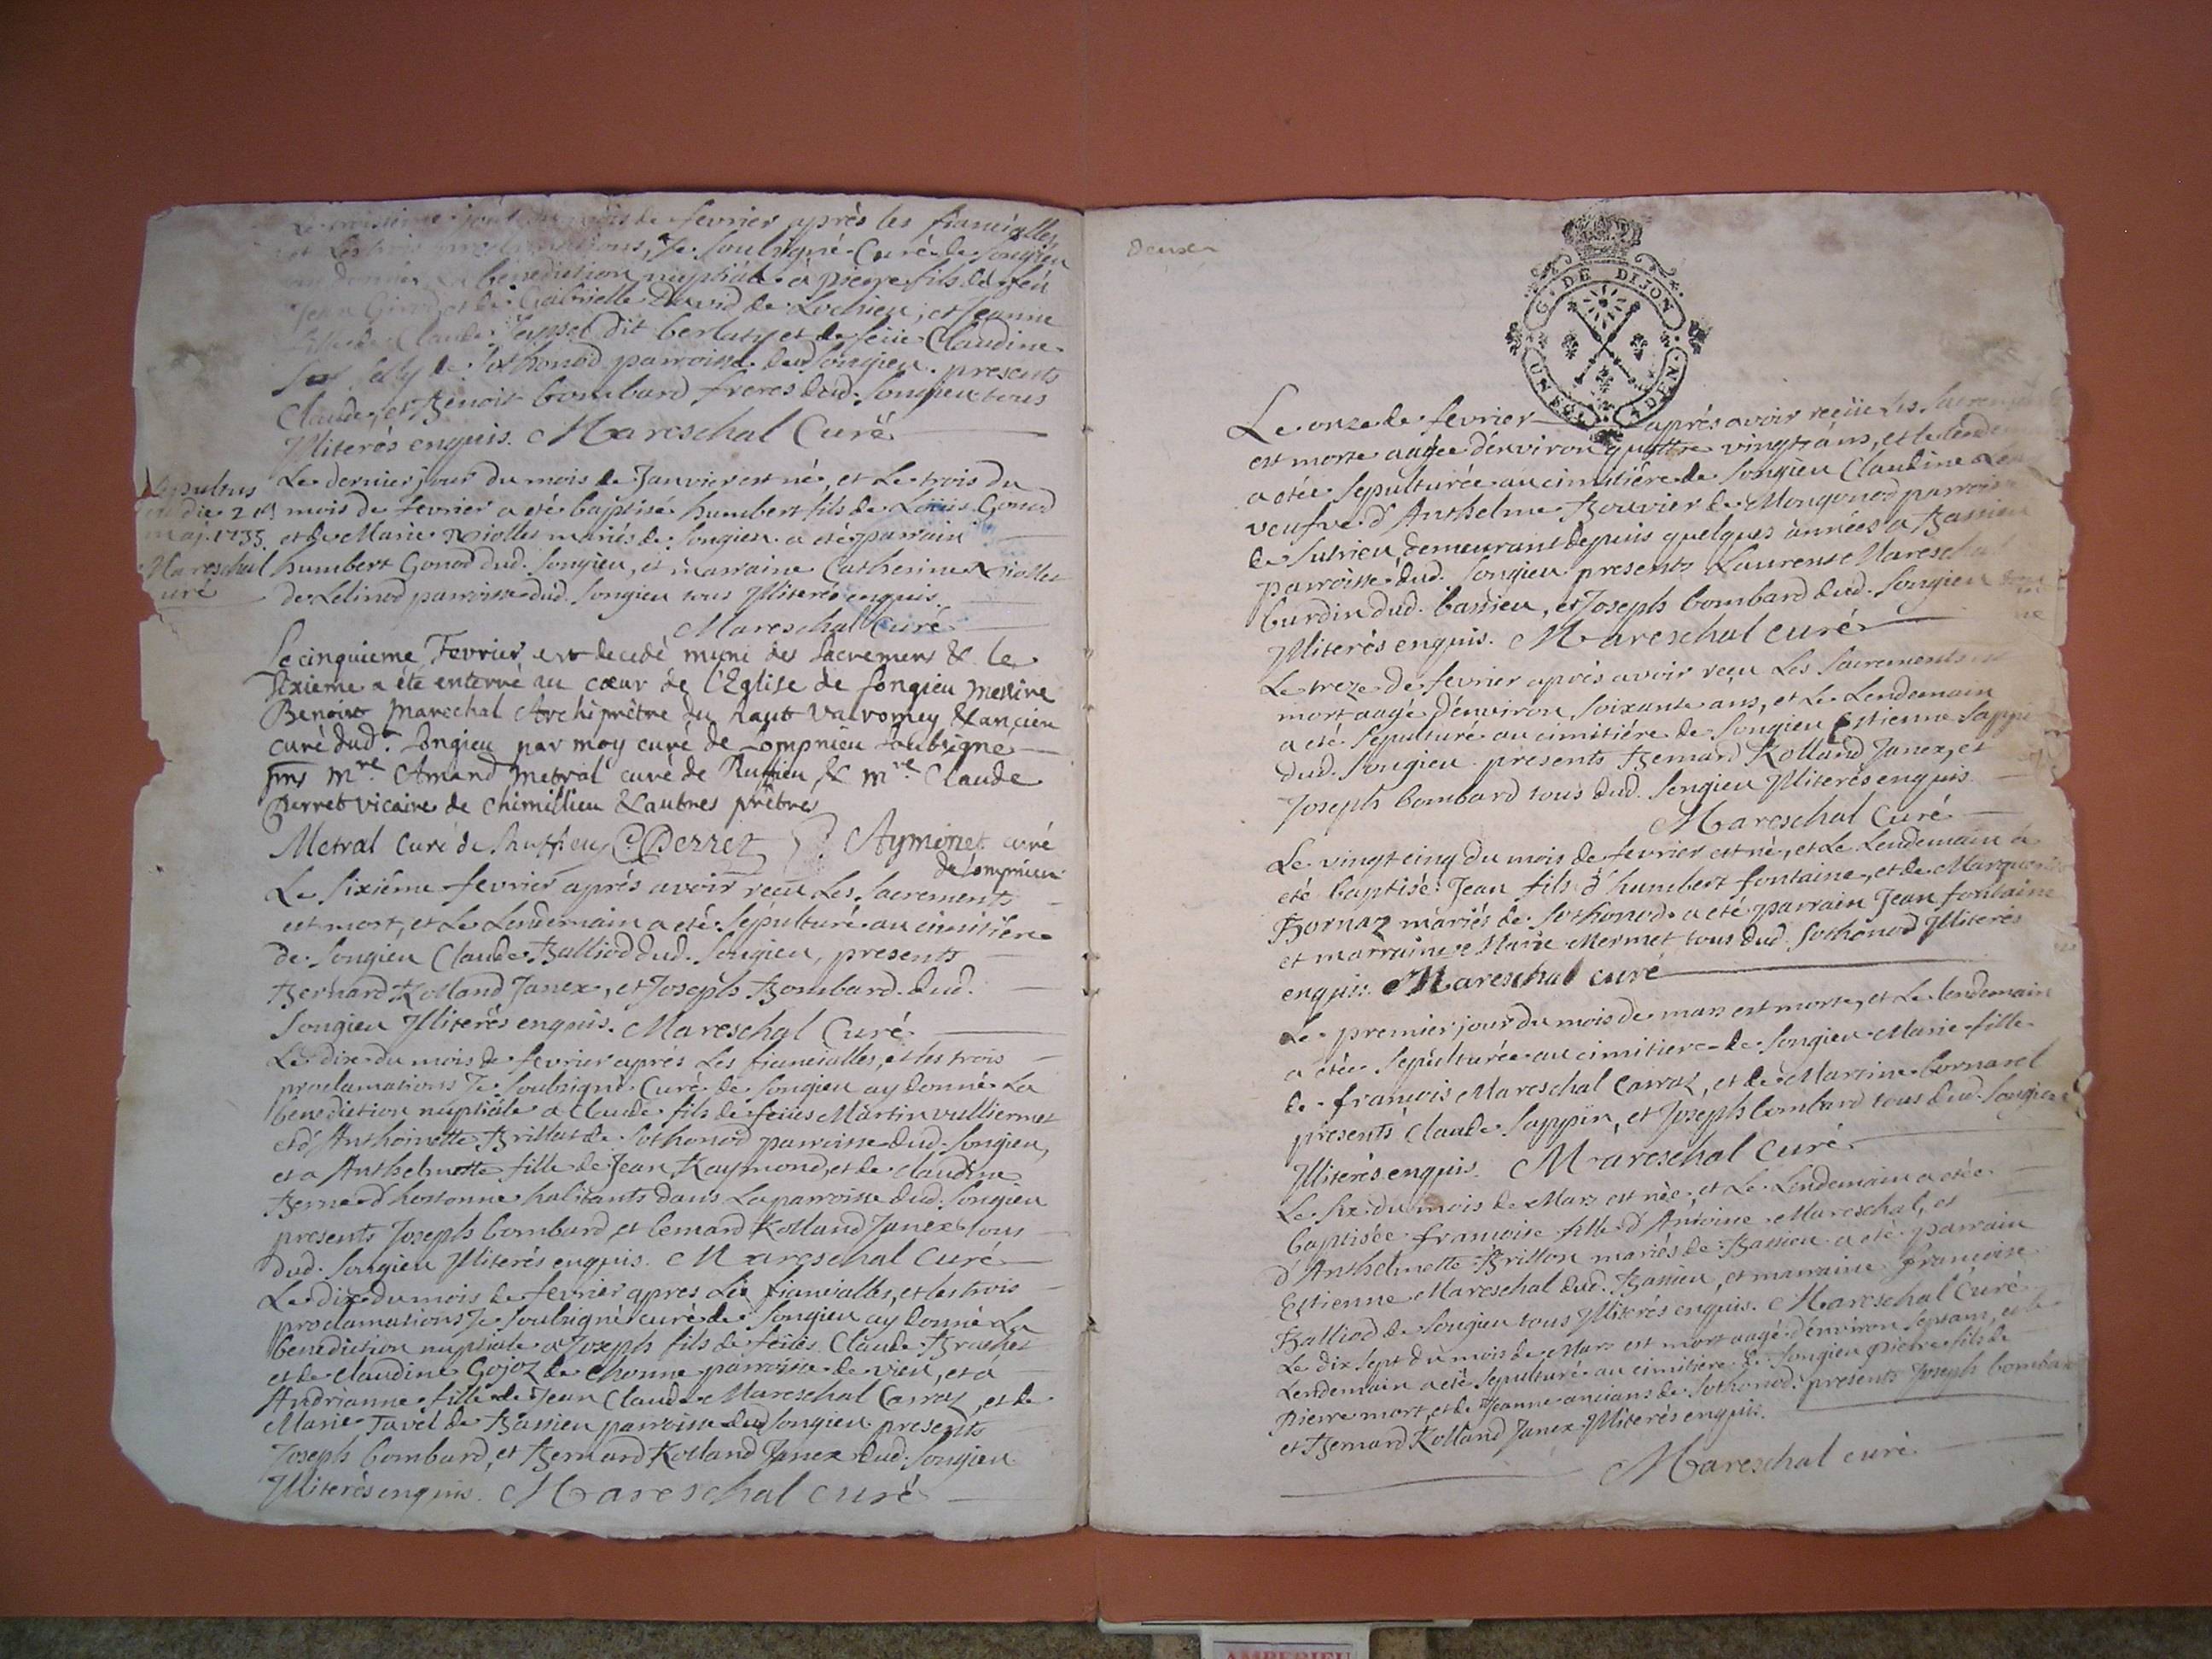 Le troisieme jour du mois de fevrier après les fiancialles
et les trois proclamations, Je soubsigné Curé de Songieu
ay donné la benediction nuptiale à pierre fils de feu
Jean et de Gabrielle David de Lochieu, et Jeanne
fille de Claude dit berlaty et de feüe Claudine
de Sothonod parroisse dud. Songieu. presents
Claude, et Benoit bombard freres dud. Songieu tous
Illiterés enquis. Mareschal Curé
Le dernier jour du mois de Janvier est né, et Le trois du
mois de fevrier a eté baptisé humbert fils de Loüis Gonod
et de Marie Riollet mariés de Songieu. a eté parrain
humbert Gonod dud. Songieu, et marraine Catherine Riollet
de Lilinod parroisse dud. Songieu tous Illiterés enquis.
Mareschal Curé
sepultus
die 2
maj. 1735.
Mareschal
curé
Le cinquieme Fevrier est decedé muni des Sacremens & le
sixieme a été enterré au cœur de l'Eglise de songieu messire
Benoist Marechal Archiprêtre du haut Valromey & ancien
curé dud.t Songieu par moy curé de Lompnieu soubsigne
pns m.re Amand Metral curé de Ruffieu, & m.re Claude
Perret vicaire de Chimillieu & autres prêtres
Metral Curé de Ruffieu C Perret Aymonet curé
de Lompnieu
Le Sixiéme fevrier aprés avoir reçu Les Sacrements
est mort, et Le Lendemain a eté Sépulturé au cimitiere
de Songieu Claude Balliod dud. Songieu, presents
Bernard Rolland Janex, et Joseph Bombard dud.
Songieu Illiterés enquis. Mareschal Curé
Le dix du mois de fevrier aprés Les fiancialles, et les trois
proclamations Je Soubsigné Curé de Songieu ay donné La
bénediction nuptiale a Claude fils de feües Martin vulliermet
et d'Anthoinette Brillat de Sothonod parroisse dud. Songieu,
et a Anthelmette fille de Jean Raymond, et de claudine
Berne d'hostonne habitants dans La parroisse dud. Songieu
presents Joseph bombard, et bernard Rolland Janex tous
dud. Songieu Illiterés enquis. Mareschal Curé
Le dix du mois de fevrier apres Les fiancialles, et les trois
proclamations Je Soubsigné curé de Songieu ay donné La
benediction nuptiale a Joseph fils de feües Claude Brachet
et de claudine Gojoz de Chonne parroisse de vieu, et à
Andrianne fille de Jean Claude Mareschal Carraz, et de
Marie Tavel de Bassieu parroisse dud Songieu presents
Joseph bombard, et Bernard Rolland Janex dud. Songieu
Illiterés enquis. Mareschal curé
Deuxe
G. DE DIJON
Le onze de fevrier aprés avoir reçüe Les Sacrements
est morte aagée d'environ quattre vingts ans, et le lendemain
a etée Sepulturée au cimitiére de Songieu Claudine
veufve d'Anthelme Bouvier de Mongonod parroisse
de Sutrieu, demeurant depuis quelques années a Bassieu
parroisse dud. Songieu presents Laurent Mareschal
burdin dud. bassieu, et Joseph bombard dud. Songieu
Illiterés enquis. Mareschal curé
Le treze de fevrier aprés avoir reçu Les Sacrements est
mort aagé d'environ Soixante ans, et Le Lendemain
a eté Sepulturé au cimitiére de Songieu Estienne
dud. Songieu. presents Bernard Rolland Janex, et
Joseph bombard tous dud. Songieu Illiterés enquis.
Mareschal Curé
Le vingt cinq du mois de fevrier est né, et Le Lendemain a
eté baptisé Jean fils d'humbert fontaine, et de Marguerite
Bornaz mariés de Sothonod. a eté parrain Jean fontaine
et marraine Marie Mermet tous dud. Sothonod Illiterés
enquis. Mareschal curé
Le premier jour du mois de mars est morte, et Le lendemain
a etée Sepulturée au cimitiere de Songieu Marie fille
de françois Mareschal Carraz, et de Martine bornarel
presents Claude Sappin, et Joseph bombard tous dud. Songieu
Illiterés enquis. Mareschal Curé
Le Six du mois de Mars est née, et Le Lendemain a etée
baptisée françoise fille d'Antoine Mareschal, et
d'Anthelmette Brillon mariés de Bassieu a eté parrain
Estienne Mareschal dud. Bassieu, et marraine françoise
Balliod de Songieu tous Illiterés enquis. Mareschal Curé
Le dix Sept du mois de Mars est mort aagé d'environ Sept ans, et le
Lendemain a eté Sepulturé au cimitiere de Songieu Pierre fils de
Pierre mort, et de Jeanne ancians de Sothonod. presents Joseph bombard
et Bernard Rolland Janex Illiterés enquis.
Mareschal curé